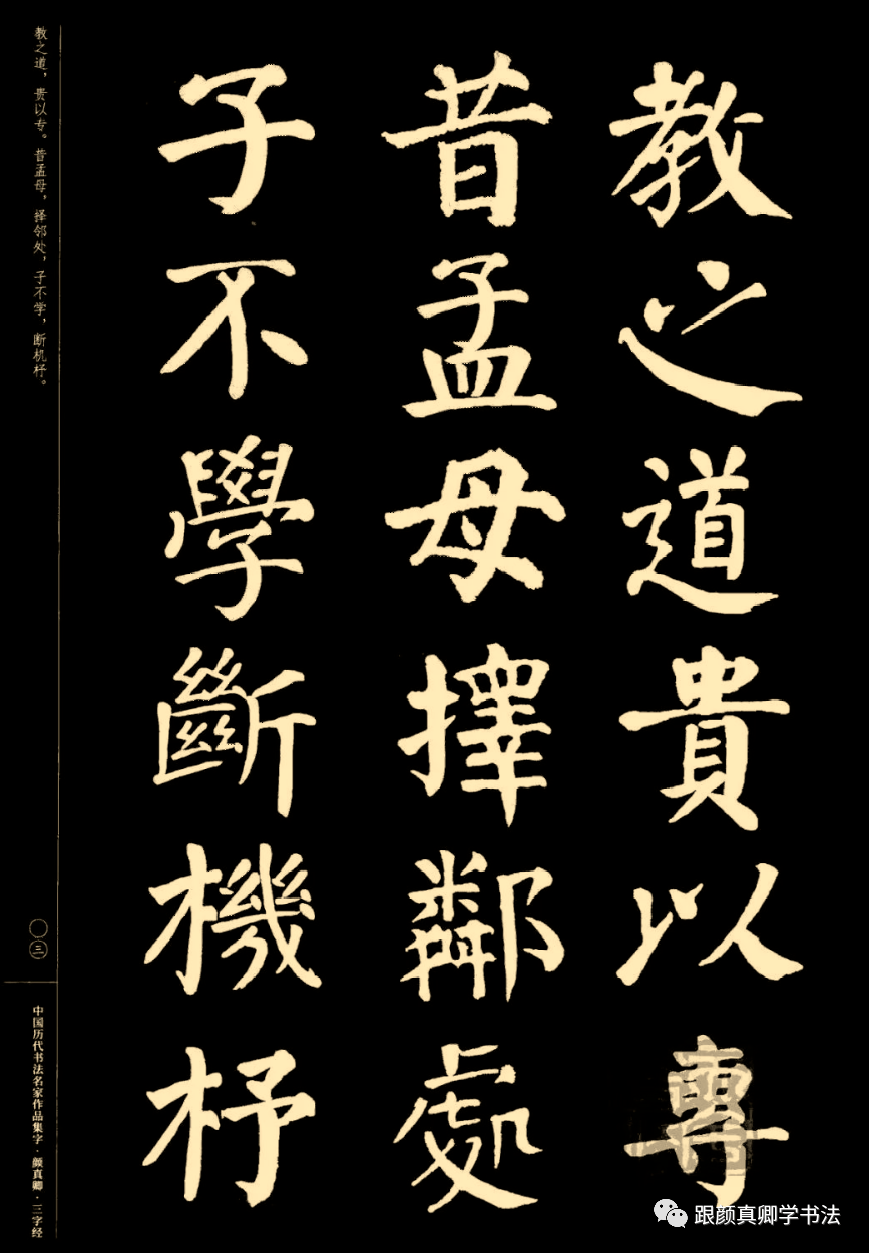 教之道貴以專
昔孟母擇鄰處
子不學斷機杼
教之道，贵以专。昔孟母，择邻处，子不学，断机杼。
〇三
中国历代书法名家作品集字·颜真卿·三字经
跟颜真卿学书法